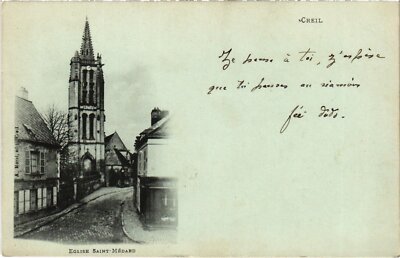 CREIL
Je pense à toi, j'espère
que tu penses au
fée dodo.
EGLISE SAINT-MÉDARD